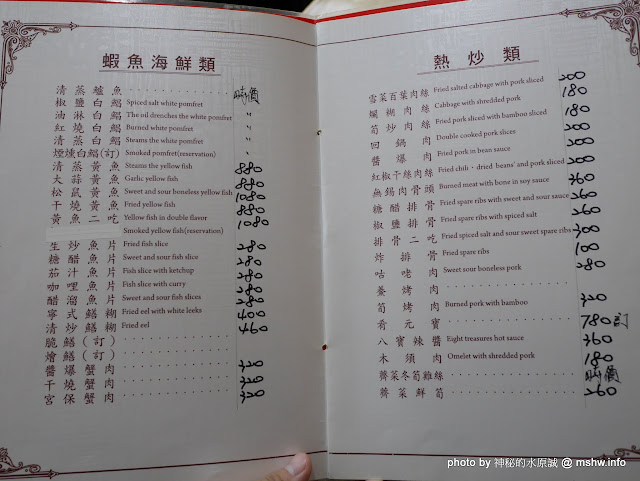 蝦魚海鮮類
清蒸鱸魚 時價
椒鹽白鯧 Spiced salt white pomfret 〃
油淋白鯧 The oil drenches the white pomfret 〃
紅燒白鯧 Burned white pomfret 〃
清蒸白鯧 Steams the white pomfret 〃
煙燻白鯧(訂) Smoked pomfret(reservation)
清蒸黃魚 Steams the yellow fish 880
大蒜黃魚 Garlic yellow fish 880
松鼠黃魚 Sweet and sour boneless yellow fish 1080
干燒黃魚 Fried yellow fish 880
黃魚二吃 Yellow fish in double flavor 1080
Smoked yellow fish(reservation)
生炒魚片 Fried fish slice 280
糖醋魚片 Sweet and sour fish slice 280
茄汁魚片 Fish slice with ketchup 280
咖哩魚片 Fish slice with curry 280
醋溜魚片 Sweet and sour fish slices 280
寧式鱔糊 Fried eel with white leeks 400
清炒鱔糊 Fried eel 460
脆鱔(訂)
燴鱔(訂)
醬爆蟹肉 320
干燒蟹肉 320
宮保蟹肉 320
熱炒類
雪菜百葉肉絲 Fried salted cabbage with pork sliced 200
爛糊肉絲 Cabbage with shredded pork 180
筍炒肉絲 Fried pork sliced with bamboo sliced 180
回鍋肉 Double cooked pork slices 200
醬爆肉 Fried pork in bean sauce 200
紅椒干絲肉絲 Fried chili、dried beans' and pork sliced 200
無錫肉骨頭 Burned meat with bone in soy sauce 360
糖醋排骨 Fried spare ribs with sweet and sour sauce 260
椒鹽排骨 Fried spare ribs with spiced salt 260
排骨二吃 Fried spiced salt and sour sweet spare ribs 300
炸排骨 Fried spare ribs 100
咕咾肉 Sweet sour boneless pork 280
烤肉
筍烤肉 Burned pork with bamboo 320
肴元寶 780訂
八寶辣醬 Eight treasures hot sauce 360
木須肉 Omelet with shredded pork 180
薺菜冬筍雞絲 時價
薺菜鮮筍 260
photo by 神秘的水原誠 @ mshw.info